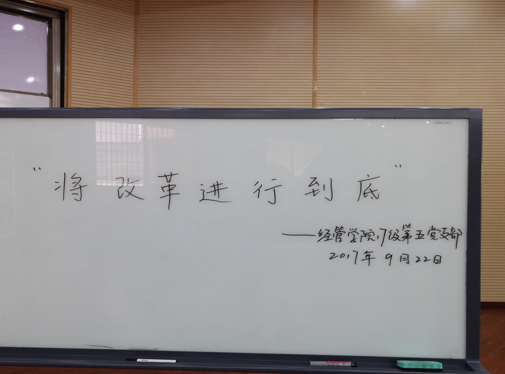 "将改革进行到底"
——经管学院17级第五党支部
2017年9月22日